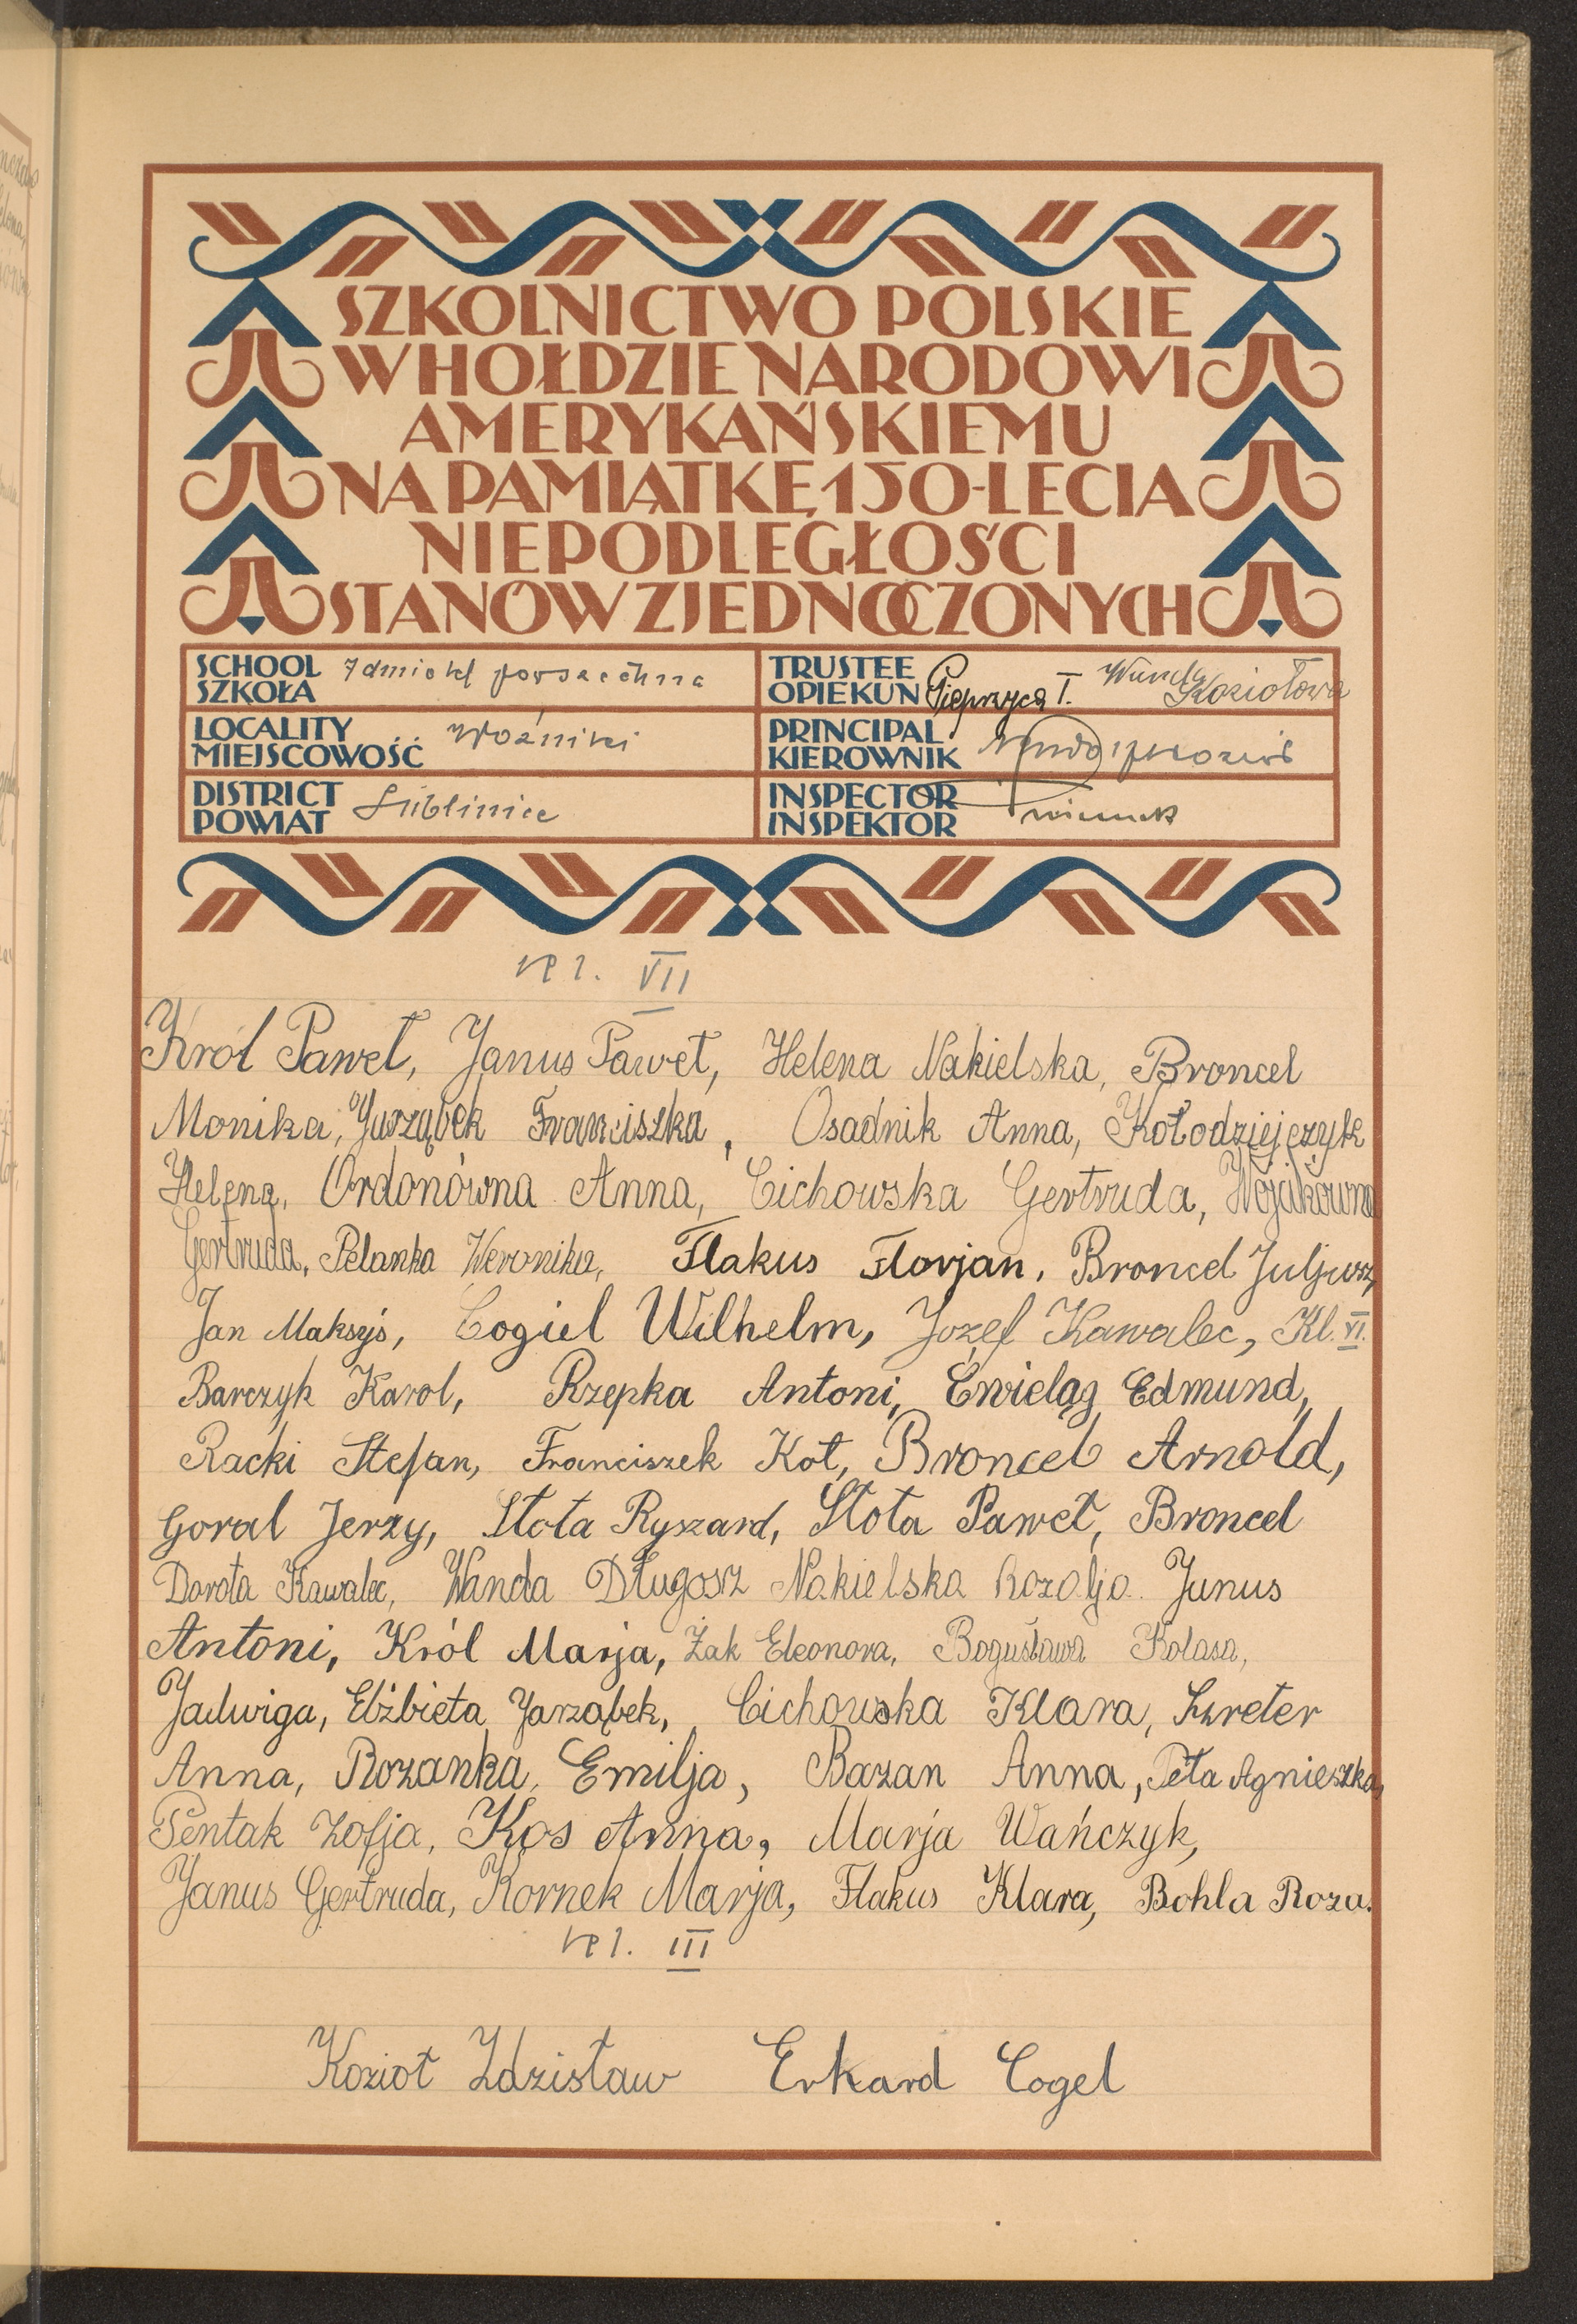 SZKOLNICTWO POLSKIE
W HOŁDZIE NARODOWI
AMERYKAŃSKIEMU
NA PAMIĄTKĘ 150-LECIA
NIEPODLEGŁOŚCI
STANÓW ZJEDNOCZONYCH
SCHOOL
SZKOŁA 7dmio kl powszechna
TRUSTEE
OPIEKUN Pieprzyca T. Wanda Koziołowa
LOCALITY
MIEJSCOWOŚĆ Woźniki
PRINCIPAL
KIEROWNIK
DISTRICT
POWIAT Lubliniec
INSPECTOR
INSPEKTOR
kl. VII
Król Paweł, Janus Paweł, Helena Nakielska, Broncel
Monika, Jarząbek Franciszka, Osadnik Anna, Kołodziejczyk
Helena, Ordonówna Anna, Cichowska Gertruda, Wójcikówna
Gertruda, Pelanka Weronika, Flakus Florjan, Broncel Juljusz,
Jan Maksyś, Cogiel Wilhelm, Jozef Kawalec, Kl. VI.
Barczyk Karol, Rzepka Antoni, Ćwieląg Edmund,
Racki Stefan, Franciszek Kot, Broncel Arnold,
Goral Jerzy, Stota Ryszard, Stota Paweł, Broncel
Dorota Kawalec, Wanda Długosz Nakielska Rozalja. Janus
Antoni, Król Marja, Żak Eleonora, Bogusława Kolasa,
Jadwiga, Elżbieta Jarząbek, Cichowska Klara, Szreter
Anna, Rozanka, Emilja, Bazan Anna, Peta Agnieszka,
Pentak Zofja, Kos Anna, Marja Wańczyk,
Janus Gertruda, Kornek Marja, Flakus Klara, Bohla Roza.
kl. III
Kozioł Zdzisław Erhard Cogel